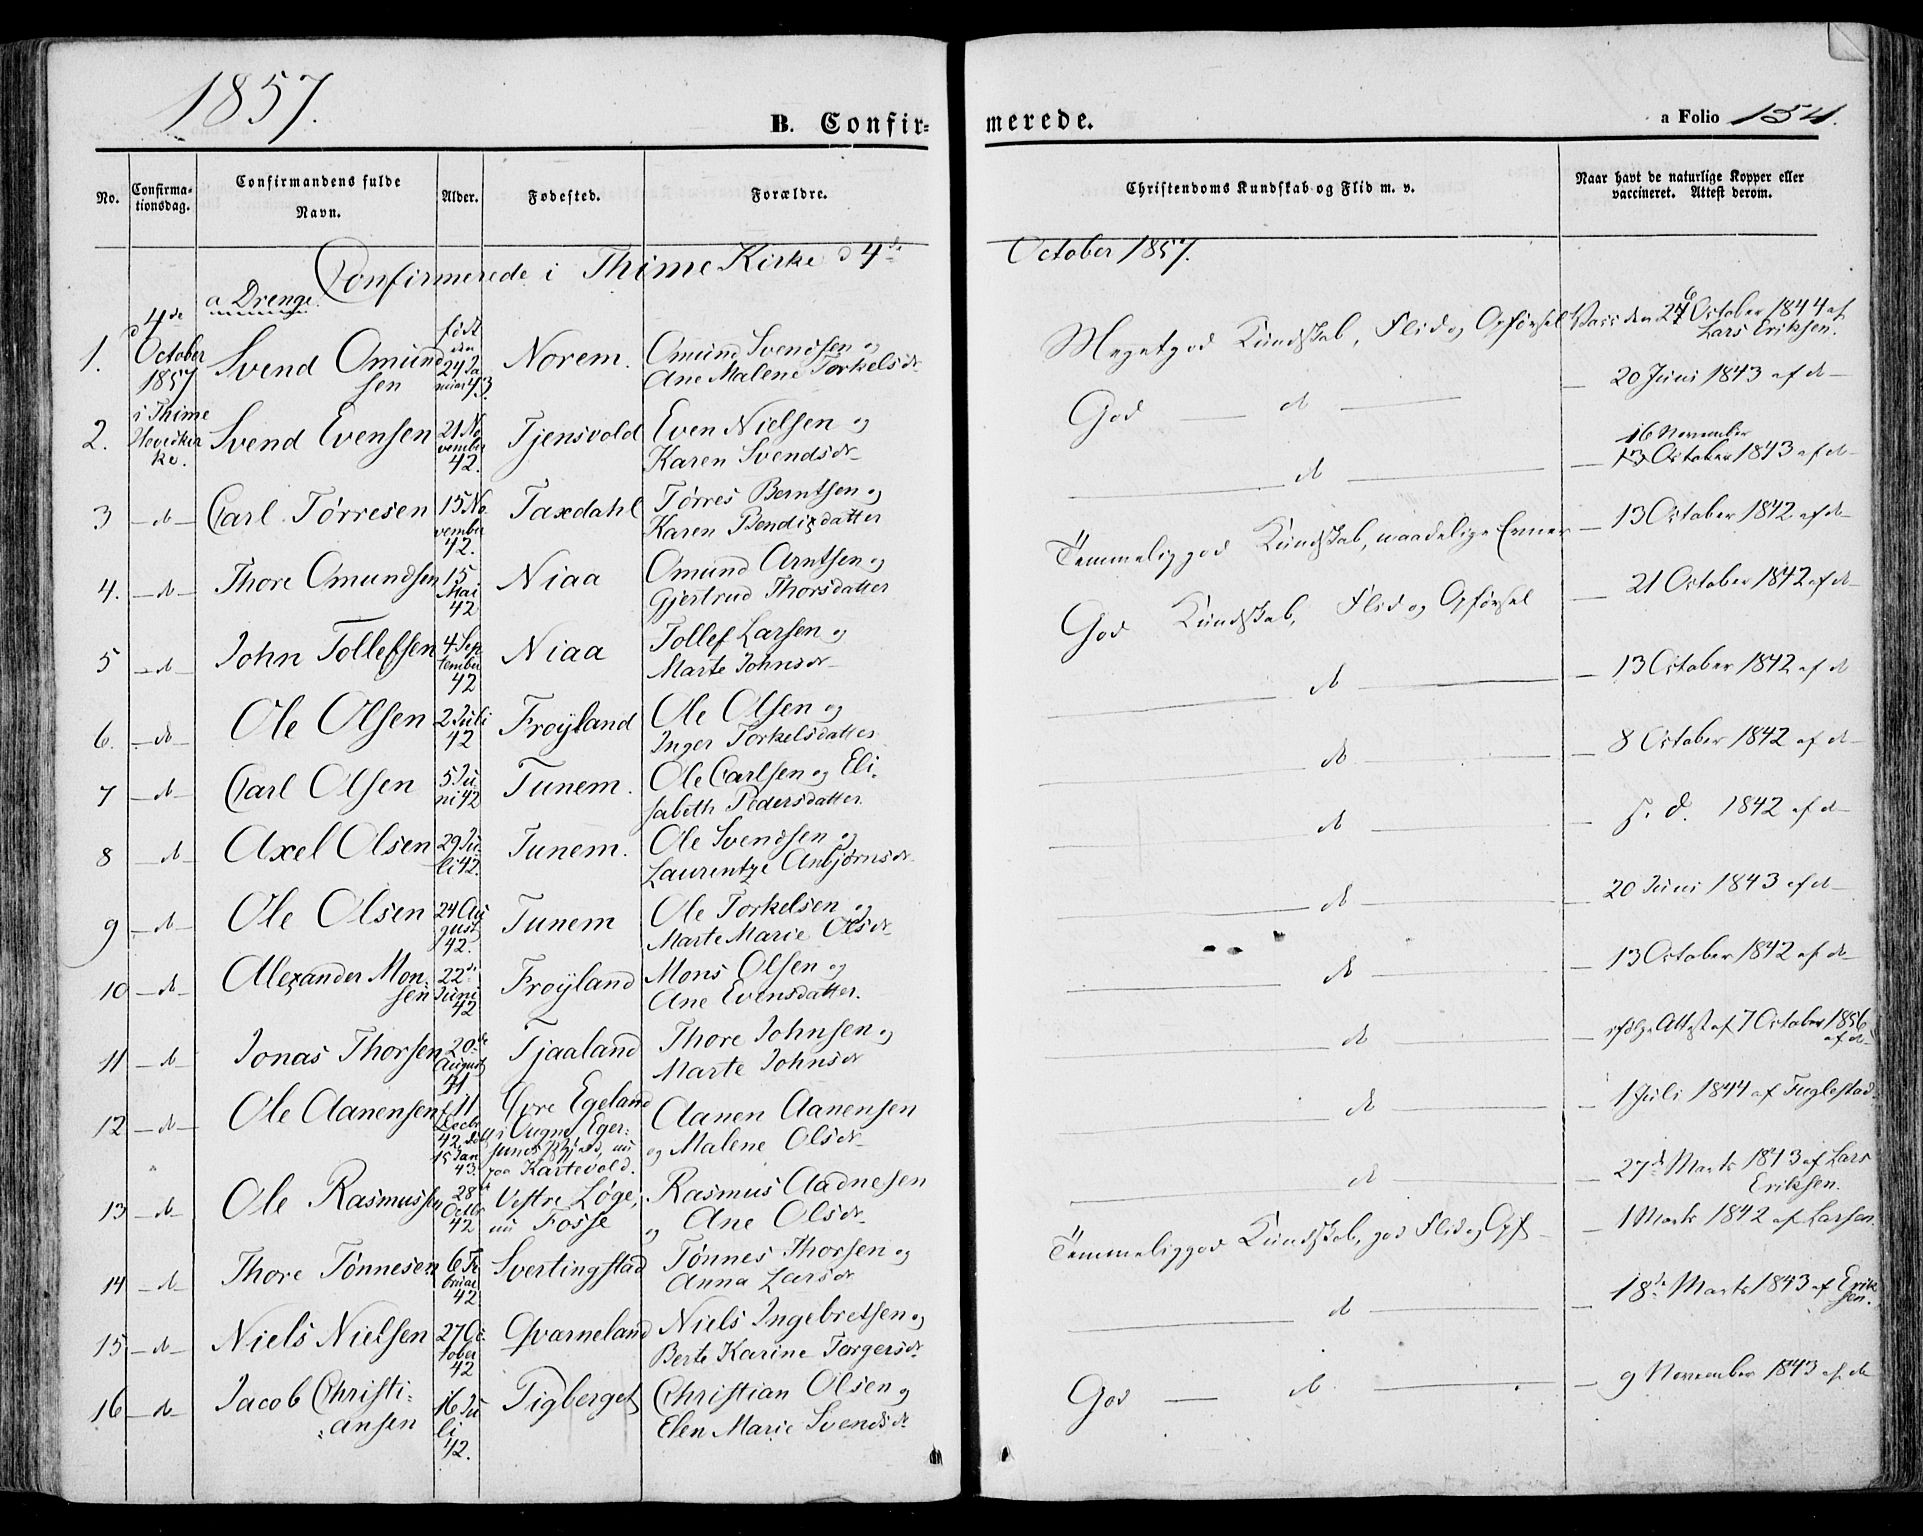 1857.
B. Confir-
merede.
a Folio 154.
No.
Confirma-
tionsdag.
Confirmandens fulde
Navn.
Alder.
Fødested.
Forældre.
Christendoms Kundskab og Flid m. v.
Naar havt de naturlige Kopper eller
vaccineret. Attest derom.
Confirmerede i Thime Kirke d 4de
October 1857.
a Drenge
1.
d 4de
October
1857
i Thime
Hovedkir
ke.
Svend Omund
sen
født
den
24 Ja
nuar 43
Norem.
Omund Svendsen og
Ane Malene Torkelsdr
Megetgod Kundskab, Flid og Opførsel
Vacc den 26 October 1844 af
Lars Eriksen.
2.
Svend Evensen
21 No
vember
42.
Tjensvold
Even Nielsen og
Karen Svendsdr
God — d —
— 20 Juni 1843 af d —
3 — d —
Carl Tørresen
15 No
vember
42.
Taxdahl
Tørres Berntsen og
Karen Bendixdatter
— d —
16 November
— 13 October 1843 af d —
4. — d —
Thore Omundsen
15
Mai
42
Niaa
Omund Arntsen og
Gjertrud Thorsdatter
Temmeliggod Kundskab, maadelige Evner
— 13 October 1842 af d —
5 — d —
John Tollefsen
4 Sep
tember
42
Niaa
Tollef Larsen og
Marte Johnsdr
God Kundskab, Flid og Opførsel
— 21 October 1842 af d —
6. — d —
Ole Olsen
2 Juli
42
Frøyland
Ole Olsen og
Inger Torkelsdatter
— d —
— 13 October 1842 af d
7 — d —
Carl Olsen
5 Ju
ni 42
Tunem.
Ole Carlsen og Eli-
sabeth Pedersdatter
— d —
— 8 October 1842 af d —
8 — d —
Axel Olsen
29 Ju
li 42.
Tunem.
Ole Svendsen og
Laurentze Asbjørnsdr
— d —
— s. d. 1842 af d —
9 — d —
Ole Olsen
24 Au
gust
42.
Tunem
Ole Torkelsen og
Marte Marie Olsdr
— d —
— 20 Juni 1843 af d —
10 — d —
Alexander Mon-
sen
22de
Juni
42
Frøyland
Mons Olsen og
Ane Evensdatter.
— d —
— 13 October 1842 af d —
11 — d —
Jonas Thorsen
20de
August
41
Tjaaland
Thore Johnsen og
Marte Johnsdr
— d —
ifølge Attest af 7 October 1856
af d —
12 — d —
Ole Aanensen
f 11
Decbr
42, døbt
15 Jan
43.
Øvre Egeland
i Ougne, Eger-
sunds Prgjeld, nu
paa Kartevold.
Aanen Aanensen
og Malene Olsdr
— d —
— 1 Juli 1844 af Fuglestad
13 — d —
Ole Rasmussen
28de
Octbr
42
Vestre Løge,
nu Fosse
Rasmus Aadnesen
og Ane Olsdr
— d —
— 27de Marts 1843 af Lars
Eriksen.
14 — d —
Thore Tønnesen
6 Fe
bruar
42
Svertingstad
Tønnes Thorsen og
Anna Larsdr
Temmeliggod Kundskab, god Flid og Opf —
— 1 Marts 1842 af Larsen
15 — d —
Niels Nielsen
27 Oc
tober
42
Qvarneland
Niels Ingebretsen og
Berte Karine Torgersdr
— d —
— 18de Marts 1843 af Erik
sen.
16 — d —
Jacob Christi-
ansen
16 Ju
li
42.
Tigberget
Christian Olsen og
Elen Marie Svendsdr
God — d —
— 9 November 1843 af d